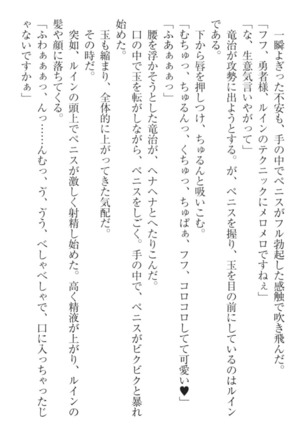 一瞬よぎった不安も、手の中でペニスがフル勃起した感触で吹き飛んだ。
「フフ、勇者様、ルインのテクニックにメロメロですねぇ」
「な、生意気言いやがって」
竜治が攻勢に出ようとする。が、ペニスを握り、玉を目の前にしているのはルイン
である。
下から唇を押しつけ、ちゅるんと吸いこむ。
「むちゅっ、ちゅるんっ、くちゅっ、ちゅぱぁ、フフ、コロコロしてて可愛い♥」
「ふあぁぁぁっ」
腰を浮かそうとした竜治が、ヘナヘナとへたりこんだ。
口の中で玉を転がしながら、ペニスをしごく。手の中で、ペニスがビクビクと暴れ
始めた。
玉も縮まり、全体的に上がってきた気配だ。
その時だ。
突如、ルインの頭上でペニスが激しく射精し始めた。高く精液が上がり、ルインの
髪や顔に落ちてくる。
「ふわぁぁぁっ、んっ……んむっっ、う、ううっ、べしゃべしゃで、口に入っちゃったじ
ゃないですかぁ」